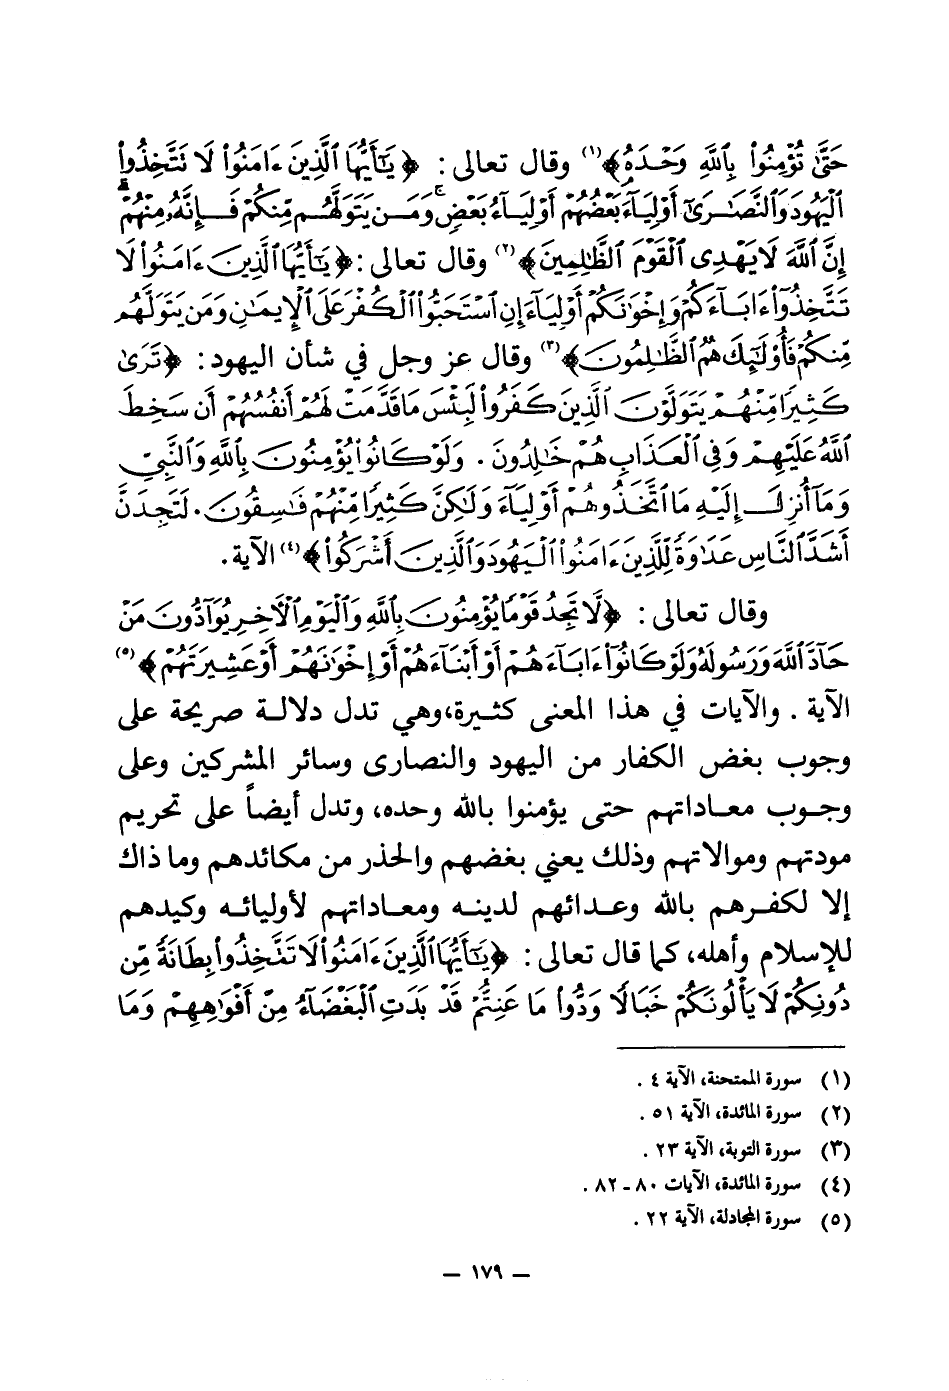 حَتَّىٰ تُؤْمِنُوا۟ بِٱللَّهِ وَحْدَهُ﴾(١) وقال تعالى : ﴿يَـٰٓأَيُّهَا ٱلَّذِينَ ءَامَنُوا۟ لَا تَتَّخِذُوا۟
ٱلْيَهُودَ وَٱلنَّصَـٰرَىٰٓ أَوْلِيَآءَ بَعْضُهُمْ أَوْلِيَآءُ بَعْضٍ ۚ وَمَن يَتَوَلَّهُم مِّنكُمْ فَإِنَّهُۥ مِنْهُمْ ۗ
إِنَّ ٱللَّهَ لَا يَهْدِى ٱلْقَوْمَ ٱلظَّـٰلِمِينَ﴾(٢) وقال تعالى : ﴿يَـٰٓأَيُّهَا ٱلَّذِينَ ءَامَنُوا۟ لَا
تَتَّخِذُوٓا۟ ءَابَآءَكُمْ وَإِخْوَٰنَكُمْ أَوْلِيَآءَ إِنِ ٱسْتَحَبُّوا۟ ٱلْكُفْرَ عَلَى ٱلْإِيمَـٰنِ وَمَن يَتَوَلَّهُم
مِّنكُمْ فَأُو۟لَـٰٓئِكَ هُمُ ٱلظَّـٰلِمُونَ﴾(٣) وقال عز وجل في شأن اليهود : ﴿تَرَىٰ
كَثِيرًا مِّنْهُمْ يَتَوَلَّوْنَ ٱلَّذِينَ كَفَرُوا۟ لَبِئْسَ مَا قَدَّمَتْ لَهُمْ أَنفُسُهُمْ أَن سَخِطَ
ٱللَّهُ عَلَيْهِمْ وَفِى ٱلْعَذَابِ هُمْ خَـٰلِدُونَ . وَلَوْ كَانُوا۟ يُؤْمِنُونَ بِٱللَّهِ وَٱلنَّبِىِّ
وَمَآ أُنزِلَ إِلَيْهِ مَا ٱتَّخَذُوهُمْ أَوْلِيَآءَ وَلَـٰكِنَّ كَثِيرًا مِّنْهُمْ فَـٰسِقُونَ . لَتَجِدَنَّ
أَشَدَّ ٱلنَّاسِ عَدَٰوَةً لِّلَّذِينَ ءَامَنُوا۟ ٱلْيَهُودَ وَٱلَّذِينَ أَشْرَكُوا۟﴾(٤) الآية .
وقال تعالى : ﴿لَّا تَجِدُ قَوْمًا يُؤْمِنُونَ بِٱللَّهِ وَٱلْيَوْمِ ٱلْـَٔاخِرِ يُوَآدُّونَ مَنْ
حَآدَّ ٱللَّهَ وَرَسُولَهُۥ وَلَوْ كَانُوٓا۟ ءَابَآءَهُمْ أَوْ أَبْنَآءَهُمْ أَوْ إِخْوَٰنَهُمْ أَوْ عَشِيرَتَهُمْ﴾(٥)
الآية . والآيات في هذا المعنى كثيرة، وهي تدل دلالة صريحة على
وجوب بغض الكفار من اليهود والنصارى وسائر المشركين وعلى
وجوب معاداتهم حتى يؤمنوا بالله وحده، وتدل أيضاً على تحريم
مودتهم وموالاتهم وذلك يعني بغضهم والحذر من مكائدهم وما ذاك
إلا لكفرهم بالله وعدائهم لدينه ومعاداتهم لأوليائه وكيدهم
للإسلام وأهله، كما قال تعالى : ﴿يَـٰٓأَيُّهَا ٱلَّذِينَ ءَامَنُوا۟ لَا تَتَّخِذُوا۟ بِطَانَةً مِّن
دُونِكُمْ لَا يَأْلُونَكُمْ خَبَالًا وَدُّوا۟ مَا عَنِتُّمْ قَدْ بَدَتِ ٱلْبَغْضَآءُ مِنْ أَفْوَٰهِهِمْ وَمَا
(١) سورة الممتحنة، الآية ٤ .
(٢) سورة المائدة، الآية ٥١ .
(٣) سورة التوبة، الآية ٢٣ .
(٤) سورة المائدة، الآيات ٨٠ ـ ٨٢ .
(٥) سورة المجادلة، الآية ٢٢ .
— ١٧٩ —